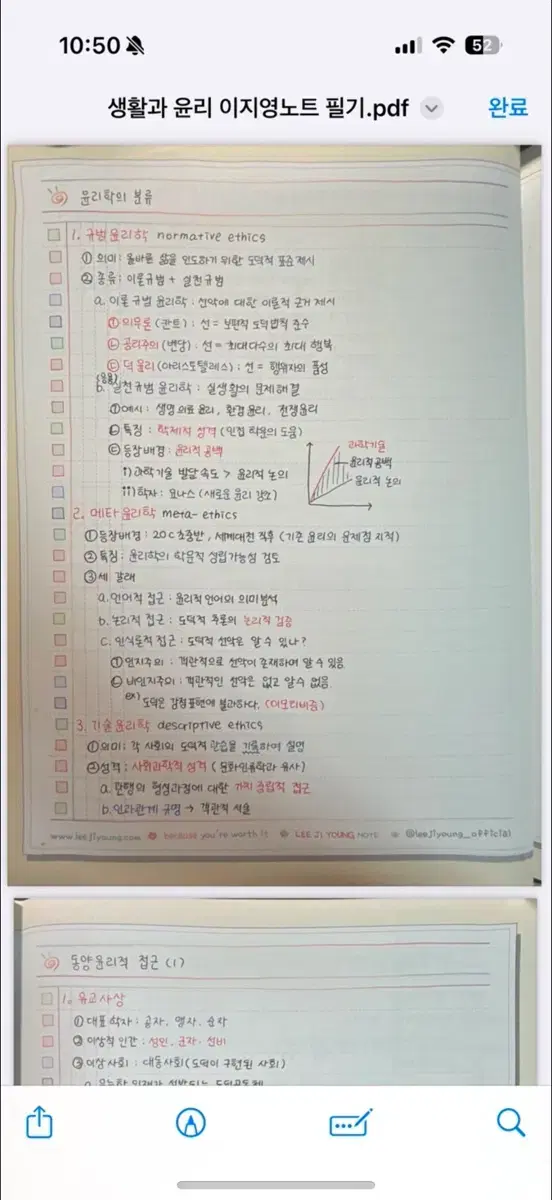 10:50
52
생활과 윤리 이지영노트 필기.pdf
완료
윤리학의 분류
1. 규범윤리학 normative ethics
① 의미 : 올바른 삶을 인도하기 위한 도덕적 표준 제시
② 종류 : 이론규범 + 실천규범
a. 이론 규범 윤리학 : 선악에 대한 이론적 근거 제시
㉠ 의무론 (칸트) : 선 = 보편적 도덕법칙 준수
㉡ 공리주의 (벤담) : 선 = 최대다수의 최대 행복
㉢ 덕 윤리 (아리스토텔레스) : 선 = 행위자의 품성
(응용)
b. 실천규범 윤리학 : 실생활의 문제해결
㉠ 예시 : 생명 의료 윤리, 환경윤리, 전쟁윤리
㉡ 특징 : 학제적 성격 (인접 학문의 도움)
㉢ 등장배경 : 윤리적 공백
i) 과학기술 발달 속도 > 윤리적 논의
ii) 학자 : 요나스 (새로운 윤리 강조)
과학기술
윤리적공백
윤리적 논의
2. 메타윤리학 meta-ethics
① 등장배경 : 20C 초중반, 세계대전 직후 (기존 윤리의 문제점 지적)
② 특징 : 윤리학의 학문적 성립가능성 검토
③ 세 갈래
a. 언어적 접근 : 윤리적 언어의 의미분석
b. 논리적 접근 : 도덕적 추론의 논리적 검증
c. 인식론적 접근 : 도덕적 선악은 알 수 있나?
㉠ 인지주의 : 객관적으로 선악이 존재하며 알 수 있음
㉡ 비인지주의 : 객관적인 선악은 없고 알 수 없음
ex) 도덕은 감정표현에 불과하다. (이모티비즘)
3. 기술윤리학 descriptive ethics
① 의미 : 각 사회의 도덕적 관습을 기록하여 설명
② 성격 : 사회과학적 성격 (문화인류학과 유사)
a. 관행의 형성과정에 대한 가치 중립적 접근
b. 인과관계 규명 → 객관적 서술
www.leejiyoung.com because you're worth it LEE JI YOUNG NOTE @leejiyoung_official
동양윤리적 접근 (1)
1. 유교사상
① 대표학자 : 공자. 맹자. 순자
② 이상적 인간 : 성인. 군자. 선비
③ 이상사회 : 대동사회 (도덕이 구현된 사회)